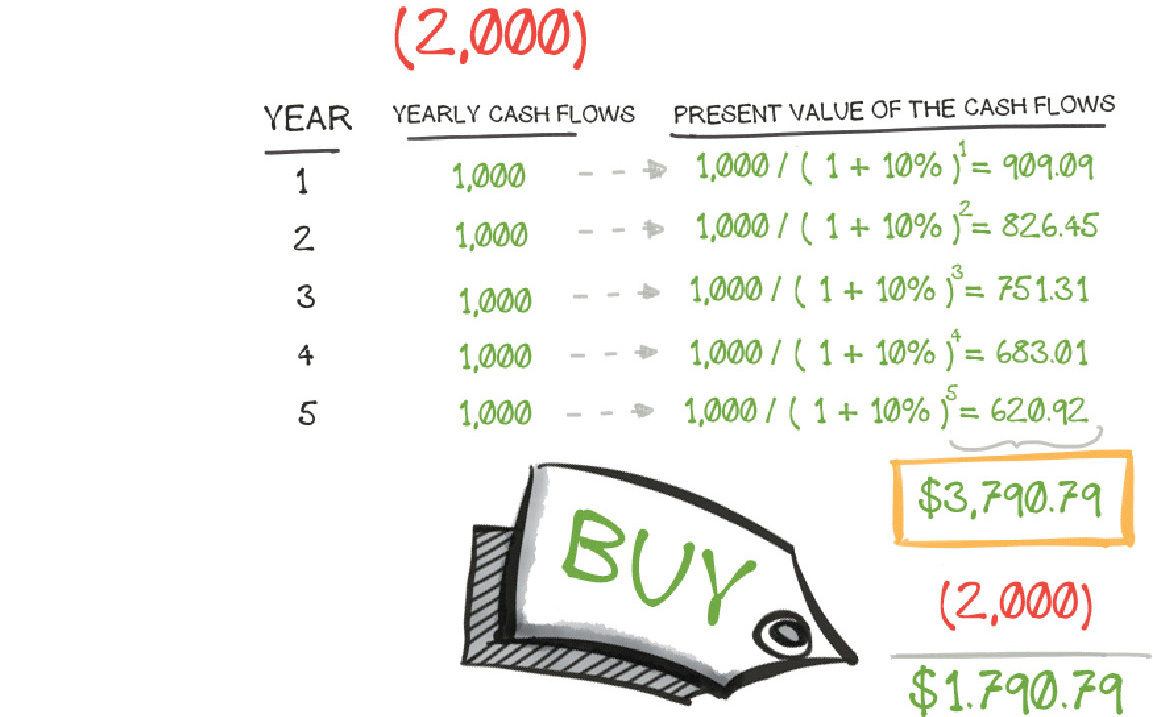 (2,000)
YEAR YEARLY CASH FLOWS PRESENT VALUE OF THE CASH FLOWS
1 1,000 1,000 / ( 1 + 10% )^1 = 909.09
2 1,000 1,000 / ( 1 + 10% )^2 = 826.45
3 1,000 1,000 / ( 1 + 10% )^3 = 751.31
4 1,000 1,000 / ( 1 + 10% )^4 = 683.01
5 1,000 1,000 / ( 1 + 10% )^5 = 620.92
$3,790.79
BUY
(2,000)
$1.790.79